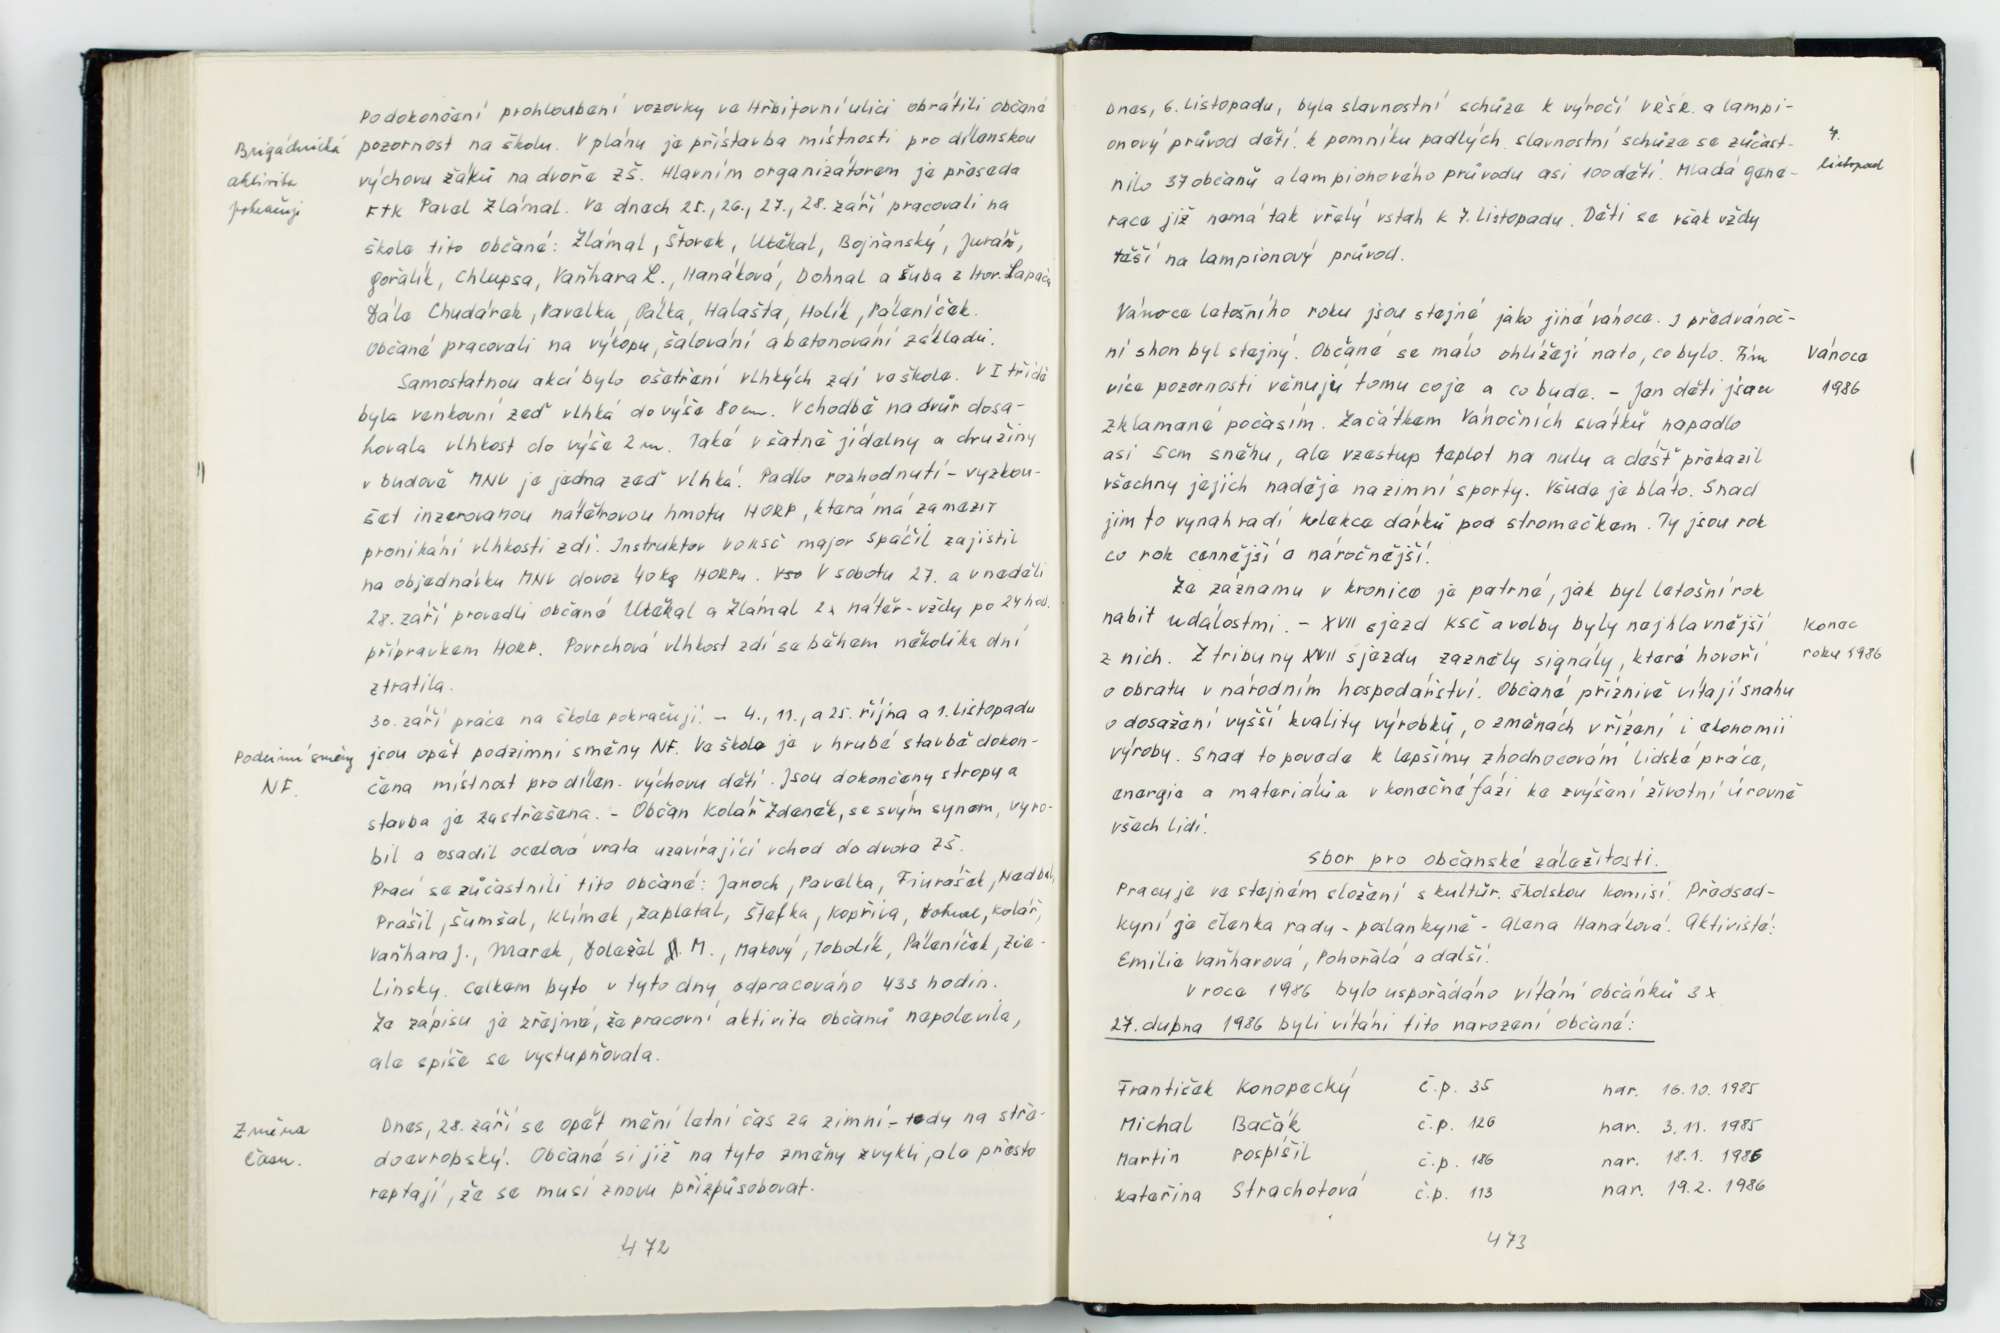 Po dokončení prohloubení vozovky ve Hřbitovní ulici obrátili občané
Brigádnická pozornost na školu. V plánu je přístavba místnosti pro dílenskou
aktivita výchovu žáků na dvoře ZŠ. Hlavním organizátorem je předseda
pokračuje FTK Pavel Zlámal. Ve dnech 25., 26., 27., 28. září pracovali na
škole tito občané: Zlámal, Štovek, Utěkal, Bojňanský, Juráň,
Gořalík, Chlupsa, Vaňhara L., Hanáková, Dohnal a Šuba z Hor. Lapače
Dále Chudárek, Pavelka, Pálka, Halašta, Holík, Páleníček.
Občané pracovali na výkopu, šalování a betonování základů.
Samostatnou akcí bylo ošetření vlhkých zdí ve škole. V I třídě
byla venkovní zeď vlhká do výše 80 cm. V chodbě na dvůr dosa-
hovala vlhkost do výše 2 m. Také v šatně jídelny a družiny
v budově MNV je jedna zeď vlhká. Padlo rozhodnutí - vyzkou-
šet inzerovanou nátěrovou hmotu HORP, která má zamezit
pronikání vlhkosti zdí. Instruktor VOKSČ major Spáčil zajistil
na objednávku MNV dovoz 40 kg HORPu. V sobotu 27. a v neděli
28. září provedli občané Utěkal a Zlámal 2x nátěr - vždy po 24 hod.
přípravkem HORP. Povrchová vlhkost zdí se během několika dní
ztratila.
30. září práce na škole pokračují. - 4., 11., a 25. října a 1. listopadu
Podzimní směny jsou opět podzimní směny NF. Ve škole je v hrubé stavbě dokon-
NF. čena místnost pro dílen. výchovu dětí. Jsou dokončeny stropy a
stavba je zastřešena. - Občan Kolář Zdeněk, se svým synem, vyro-
bil a osadil ocelová vrata uzavírající vchod do dvora ZŠ.
Prací se zúčastnili tito občané: Janoch, Pavelka, Fiurášek, Nedbal,
Prášil, Šumšal, Klimek, Zapletal, Štefka, Kopřiva, Kolář,
Vaňhara J., Marek, Doležel M., Makový, Tobolík, Páleníček, Zie-
linsky. Celkem bylo v tyto dny odpracováno 433 hodin.
Ze zápisu je zřejmé, že pracovní aktivita občanů nepolevila,
ale spíše se vystupňovala.
Změna Dnes, 28. září se opět mění letní čas za zimní - tedy na stře-
času. doevropský. Občané si již na tyto změny zvykli, ale přesto
reptají, že se musí znovu přizpůsobovat.
472
Dnes, 6. listopadu, byla slavnostní schůze k výročí VŘSR. a lampi-
onový průvod dětí k pomníku padlých. Slavnostní schůze se zúčast- 7.
nilo 37 občanů a lampionového průvodu asi 100 dětí. Mladá gene- listopad
race již nemá tak vřelý vstah k 7. listopadu. Děti se však vždy
těší na lampionový průvod.
Vánoce letošního roku jsou stejné jako jiné vánoce. I předvánoč-
ní shon byl stejný. Občané se málo ohlížejí na to, co bylo. Tím Vánoce
více pozornosti věnují tomu co je a co bude. - Jen děti jsou 1986
zklamané počasím. Začátkem Vánočních svátků napadlo
asi 5cm sněhu, ale vzestup teplot na nulu a déšť překazil
všechny jejich naděje na zimní sporty. Všude je bláto. Snad
jim to vynahradí kolekce dárků pod stromečkem. Ty jsou rok
co rok cennější a náročnější.
Ze záznamu v kronice je patrné, jak byl letošní rok
nabit událostmi. - XVII sjezd KSČ a volby byly nejhlavnější Konec
z nich. Z tribuny XVII sjezdu zazněly signály, které hovoří roku 1986
o obratu v národním hospodářství. Občané příznivě vítají snahu
o dosažení vyšší kvality výrobků, o změnách v řízení i ekonomii
výroby. Snad to povede k lepšímu zhodnocování lidské práce,
energie a materiálů a v konečné fázi ke zvýšení životní úrovně
všech lidí.
Sbor pro občanské záležitosti.
Pracuje ve stejném složení s kultúr. školskou komisí. Předsed-
kyní je členka rady - poslankyně - Alena Hanáková. Aktivisté:
Emilie Vaňharová, Pohořalá a další.
V roce 1986 bylo uspořádáno vítání občánků 3 x
27. dubna 1986 byli vítáni tito narození občané:
František Konopecký č.p. 35 nar. 16.10. 1985
Michal Bačák č.p. 126 nar. 3.11. 1985
Martin Pospíšil č.p. 186 nar. 18.1. 1986
Kateřina Strachotová č.p. 113 nar. 19.2. 1986
473